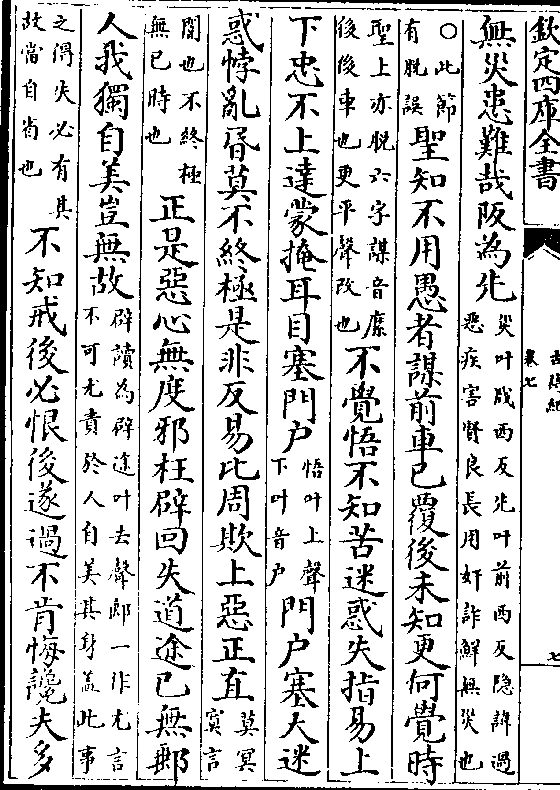 欽定四庫全書
卷七
七
無災患難哉阪為兆
災叶㦿西反兆叶前西反隐諱過
惡疾害賢良長用奸詐鮮無災也
○此節
有脱誤
聖知不用愚者謀前車已覆後未知更何覺時
聖上亦脱六字謀音麽
後後車也更平聲改也
不覺悟不知苦迷惑失指易上
下忠不上達蒙掩耳目塞門户
悟叶上聲
下叶音户
門户塞大迷
惑悖亂昬莫不終極是非反易比周欺上惡正直
莫冥
寞言
闇也不終極
無已時也
正是惡心無度邪枉辟回失道途已無郵
人我獨自美豈無故
辟讀為僻途叶去聲郵一作尤言
不可尤責於人自美其身蓋此事
之得失必有其
故當自省也
不知戒後必恨後遂過不肯悔讒夫多